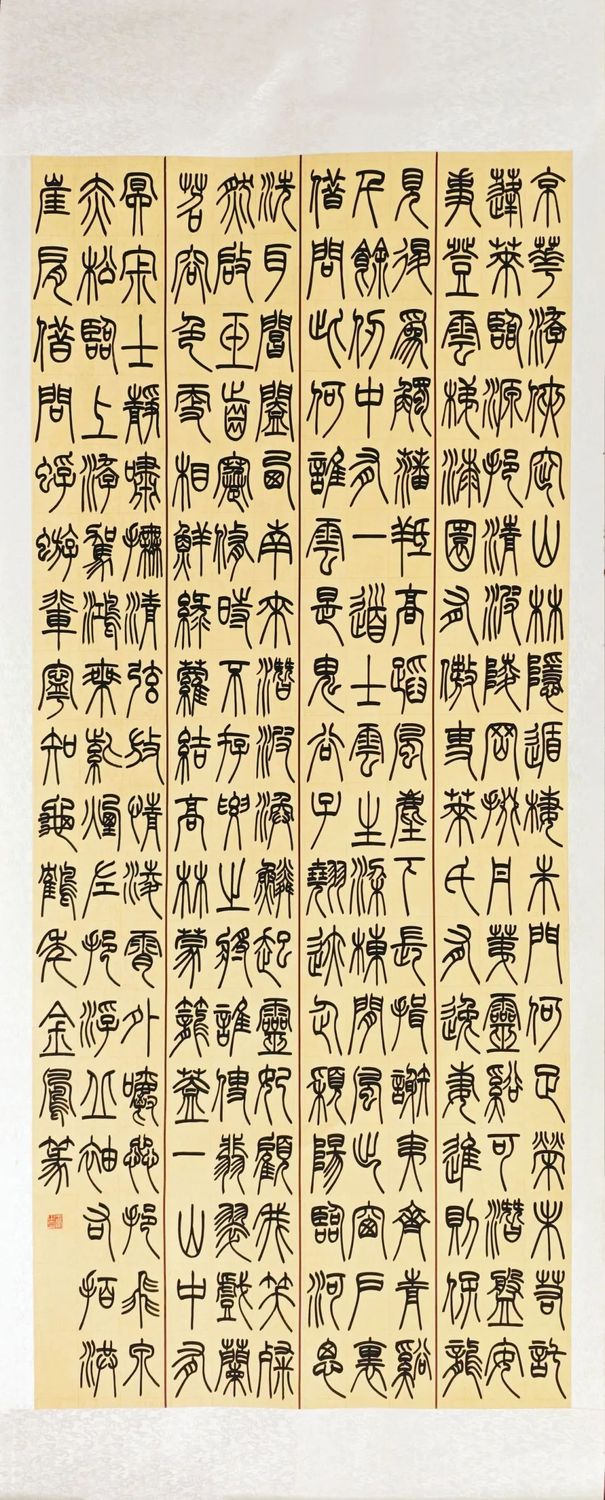 京華游俠窟山林隱遯棲朱門何足榮未若託
蓬萊臨源挹清波陵岡掇丹荑靈谿可潛盤安
事登雲梯漆園有傲吏萊氏有逸妻進則保龍
見得為觸藩羝高蹈風塵下長揖謝夷齊青谿
千餘仞中有一道士雲生梁棟間風出窗戶裏
借問此何誰雲是鬼谷子翹迹企潁陽臨河思
洗耳閶闔西南來潛波渙鱗起靈妃顧我笑粲
然啟玉齒蹇修時不存要之將誰使翡翠戲蘭
苕容色更相鮮綠蘿結高林蒙籠蓋一山中有
冥寂士靜嘯撫清弦放情凌霄外嚼蕊挹飛泉
赤松臨上游駕鴻乘紫煙左挹浮丘袖右拍洪
崖肩借問蜉蝣輩寧知龜鶴年金鳳篆